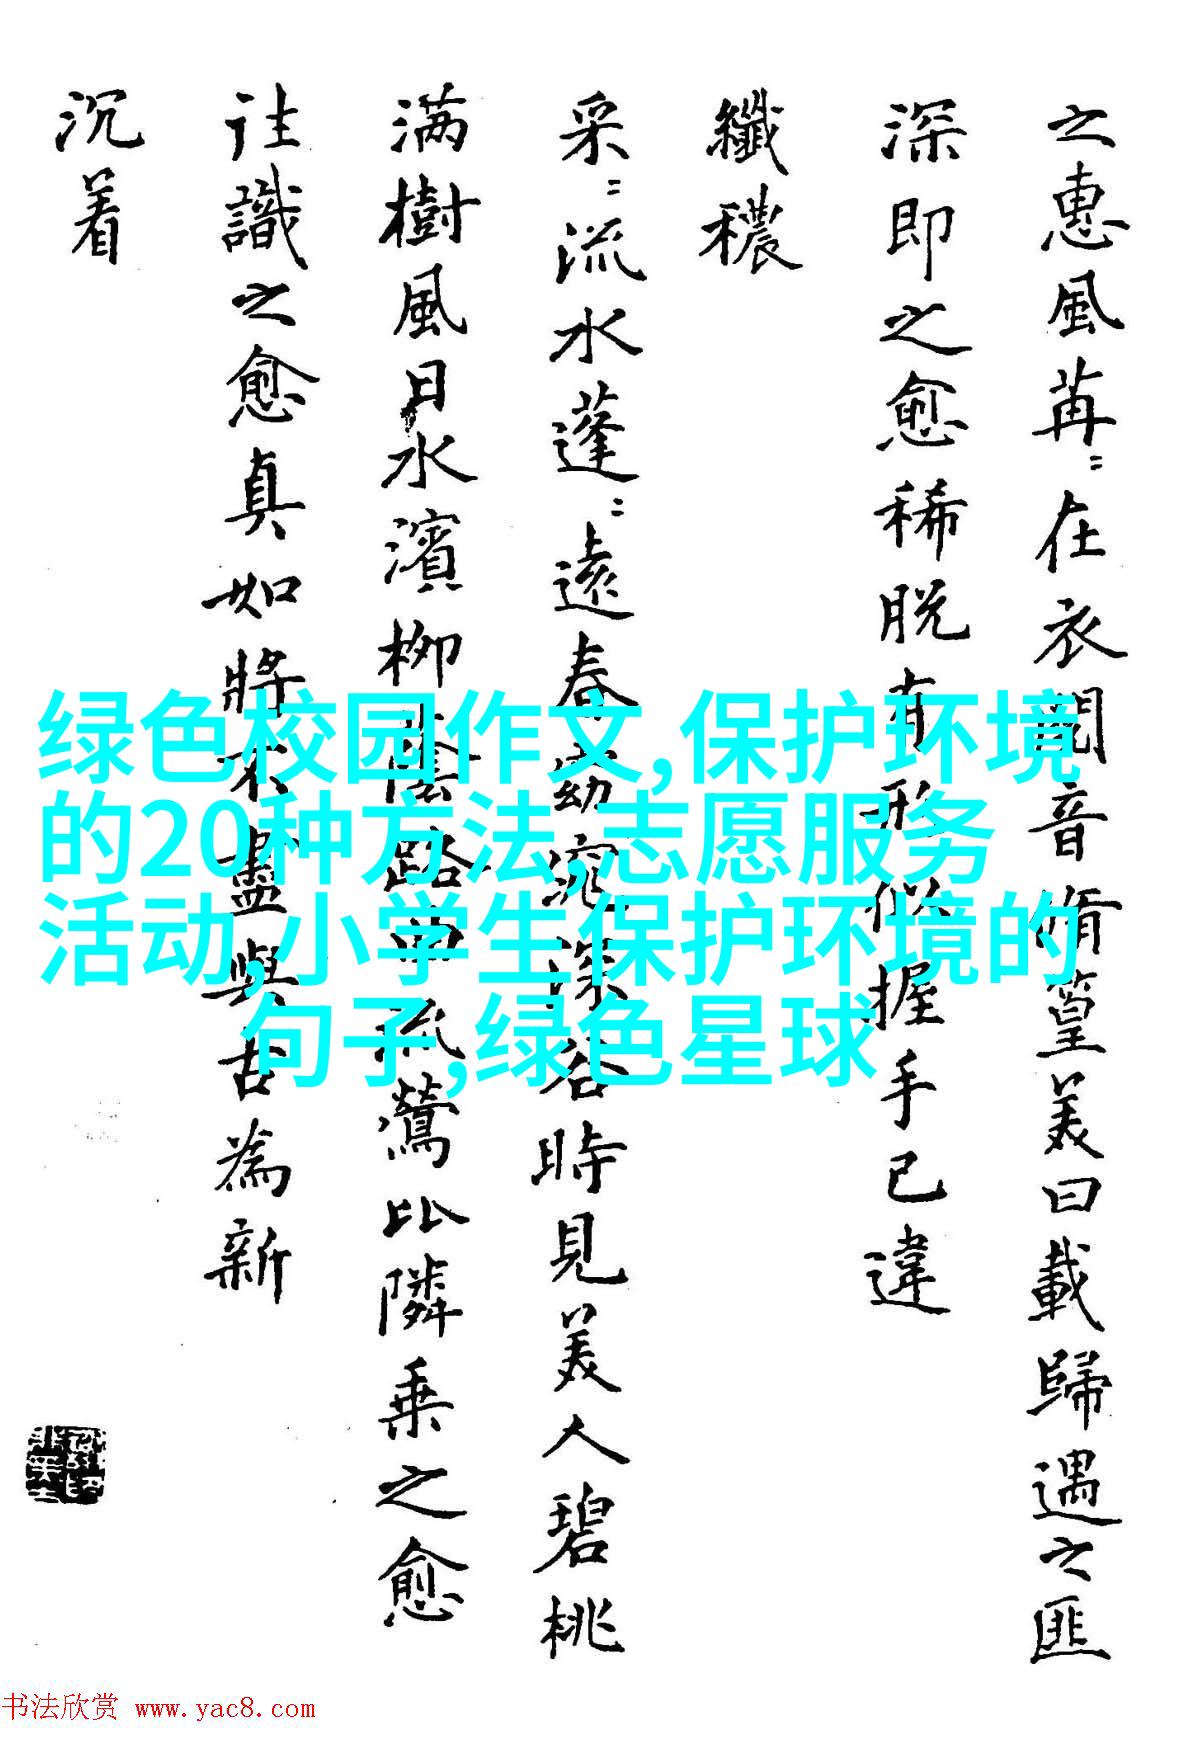 之惠風苒〻在衣閱音脩篁美曰載歸遇之匪
深即之愈稀脱有形似握手已違
纖穠
采〻流水蓬〻遠春窈窕深谷時見美人碧桃
满樹風日水濱柳陰路曲流鶯比隣乗之愈
往識之愈真如將不盡與古為新
沉着
绿色校园作文,保护环境
的20种方法,志愿服务
活动,小学生保护环境的
句子,绿色星球
书法欣赏 www.yac8.com